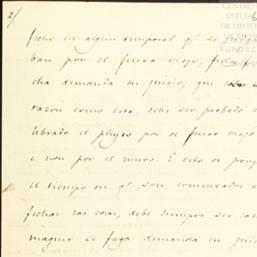 2/. 6
fecho en algun temporal qº se
ban por el fuero viejo,
cha demanda en juicio, que
razon como esta, debe ser probado
librado el pleyto por el fuero viejo
e non por el nuevo. E esto es porq
el tiempo en qº son comenzadas e
fechas las cosas, debe siempre ser
maguer se faga demanda en juicio
CENTRO
ESTUD
DE HISTO
FUNDACI